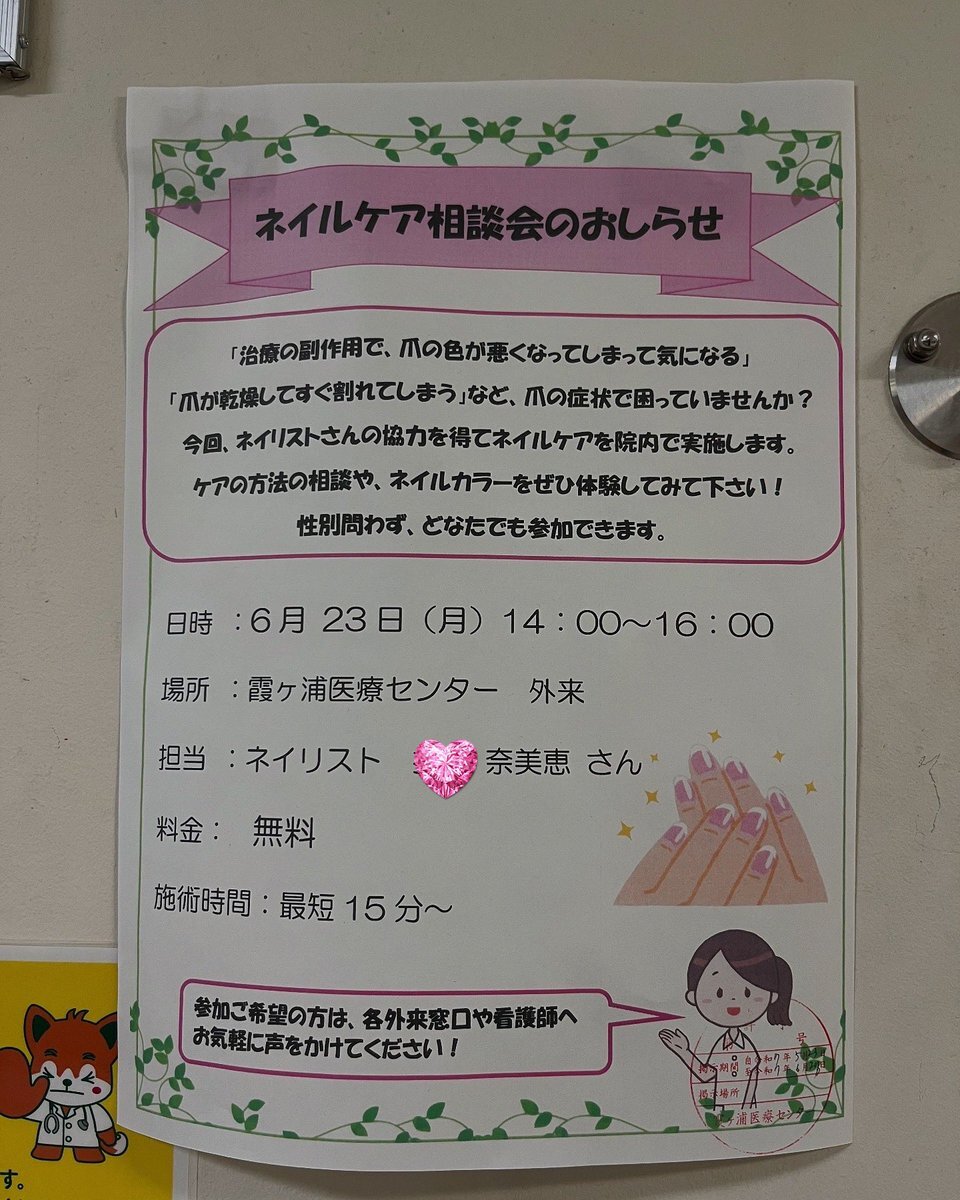 ネイルケア相談会のおしらせ
「治療の副作用で、爪の色が悪くなってしまって気になる」
「爪が乾燥してすぐ割れてしまう」など、爪の症状で困っていませんか？
今回、ネイリストさんの協力を得てネイルケアを院内で実施します。
ケアの方法の相談や、ネイルカラーをぜひ体験してみて下さい！
性別問わず、どなたでも参加できます。
日時 ：6月 23日（月）14：00～16：00
場所 ：霞ヶ浦医療センター 外来
担当 ：ネイリスト 奈美恵 さん
料金： 無料
施術時間：最短 15分～
参加ご希望の方は、各外来窓口や看護師へ
お気軽に声をかけてください！
号
掲示期間 自令和7年5月
至令和7年6月
掲示場所
霞ヶ浦医療センター
す。